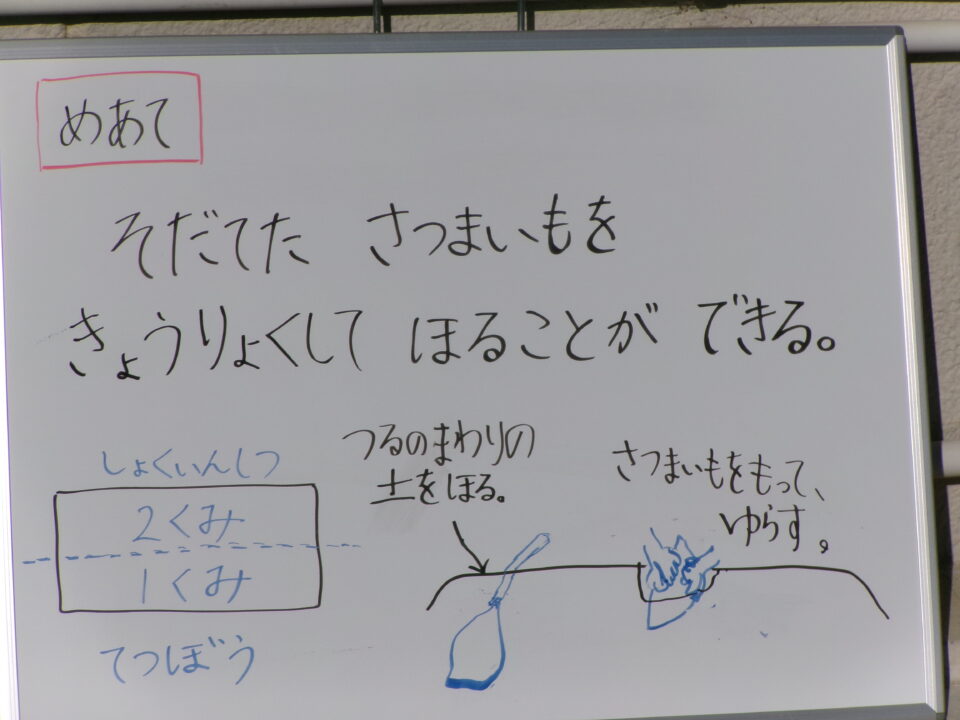 めあて
そだてた さつまいもを
きょうりょくして ほることが できる。
しょくいんしつ
2くみ
1くみ
てつぼう
つるのまわりの
土をほる。
さつまいもをもって、
ゆらす。